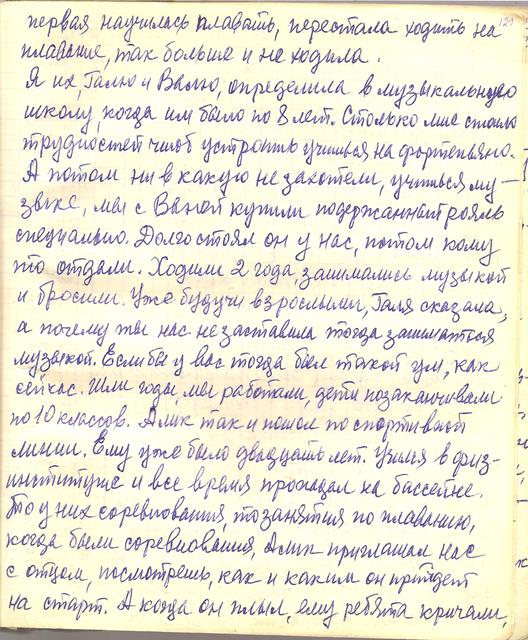 121
первая научилась плавать, перестала ходить на
плавание, так больше и не ходила.
Я их, Галю и Валю, определила в музыкальную
школу, когда им было по 8 лет. Столько мне стоило
трудностей чтоб устроить учиться на фортепьяно.
А потом ни в какую не захотели, учиться му-
зыке, мы с Ваной купили подержанный рояль
специально. Долго стоял он у нас, потом кому
то отдали. Ходили 2 года, занимались музыкой
и бросили. Уже будучи взрослыми, Галя сказала,
а почему ты нас не заставила тогда заниматься
музыкой. Если бы у вас тогда был такой ум, как
сейчас. Шли годы, мы работали, дети позаканчивали
по 10 классов. Алик так и пошел по спортивной
линии. Ему уже было двадцать лет. Учился в физ-
институте и все время пропадал на бассейне.
То у них соревнования, то занятия по плаванию,
когда были соревнования, Алик приглашал нас
с отцом, посмотреть, как и каким он прийдет
на старт. А когда он плыл, ему ребята кричали,